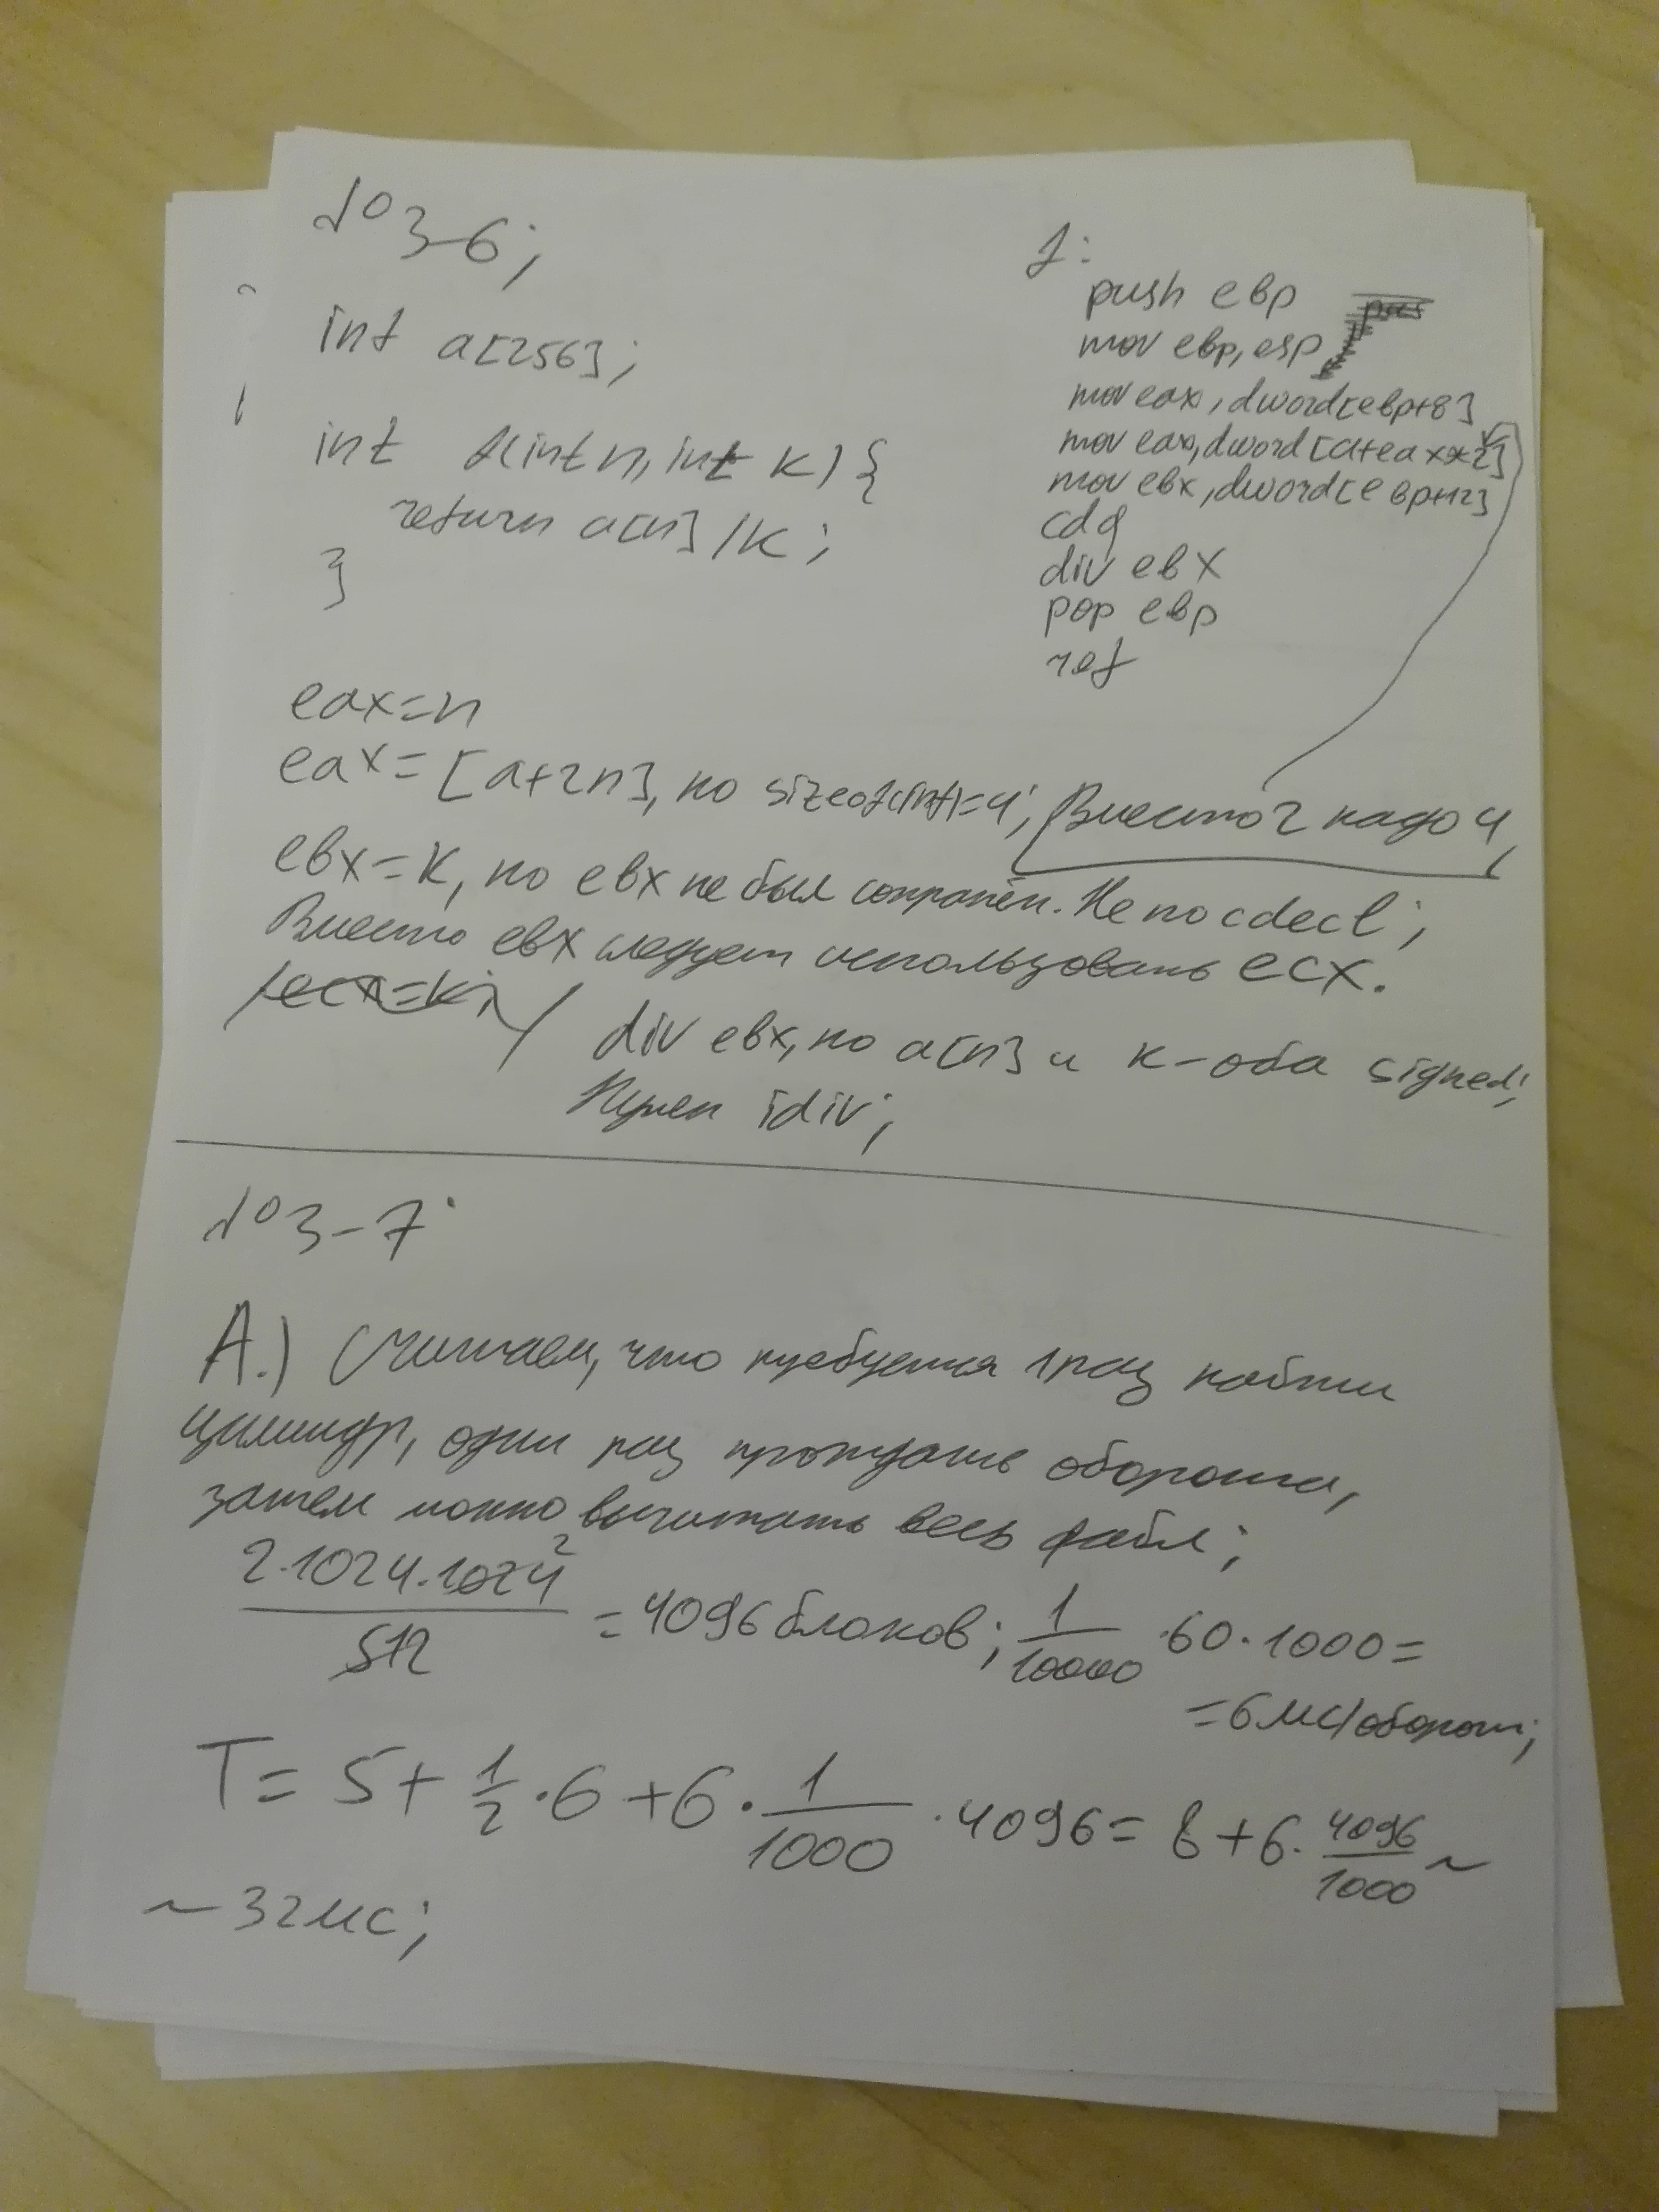 №3-6;
int a[256];
int f(int n, int k) {
return a[n]/k;
}
f:
push ebp
mov ebp, esp
mov eax, dword[ebp+8]
mov eax, dword[a+eax*2]
mov ebx, dword[ebp+12]
cdq
div ebx
pop ebp
ret
eax=n
eax=[a+2n], но sizeof(int)=4; Вместо 2 надо 4,
ebx=k, но ebx не был сохранён. Не по cdecl;
Вместо ebx следует использовать ecx.
ecx=k;
div ebx, но a[n] и k - оба signed;
Нужен idiv;
№3-7:
А.) Считаем, что требуется 1 раз найти
цилиндр, один раз прождать оборота,
затем можно вычитать весь файл;
2·1024·1024²/512 = 4096 блоков; 1/10000 ·60·1000=
=6мс/оборот;
T= 5+ 1/2·6 +6· 1/1000 ·4096= 8+6· 4096/1000 ~
~32мс;